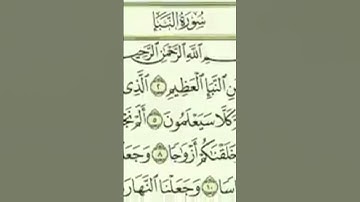 سُورَةُ النَّبَإِ
اللَّهِ الرَّحْمَٰنِ الرَّحِيمِ
النَّبَإِ الْعَظِيمِ ٢ الَّذِي
كَلَّا سَيَعْلَمُونَ ٥ أَلَمْ
خَلَقْنَاكُمْ أَزْوَاجًا ٨
وَجَعَلْنَا النَّهَارَ